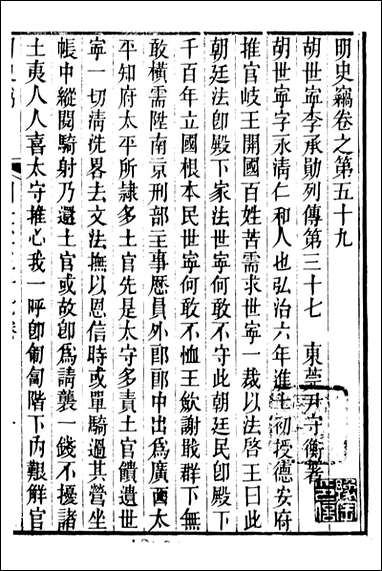 明史竊卷之第五十九
胡世寧李承勛列傳第三十七　東莞尹守衡著
胡世寧字永淸仁和人也弘治六年進士初授德安府
推官岐王開國百姓苦需求世寧一裁以法啓王曰此
朝廷法卽殿下家法世寧何敢不守此朝廷民卽殿下
千百年立國根本民世寧何敢不恤王歛謝戢群下無
敢橫需陞南京刑部主事歷員外郎郎中出爲廣西太
平知府太平所隸多土官先是太守多責土官饋遺世
寧一切淸洗畧去文法撫以恩信時或單騎過其營坐
帳中縱閱騎射乃還土官或故卽爲請襲一錢不擾諸
土夷人人喜太守推心我一呼卽匍匐階下內艱解官